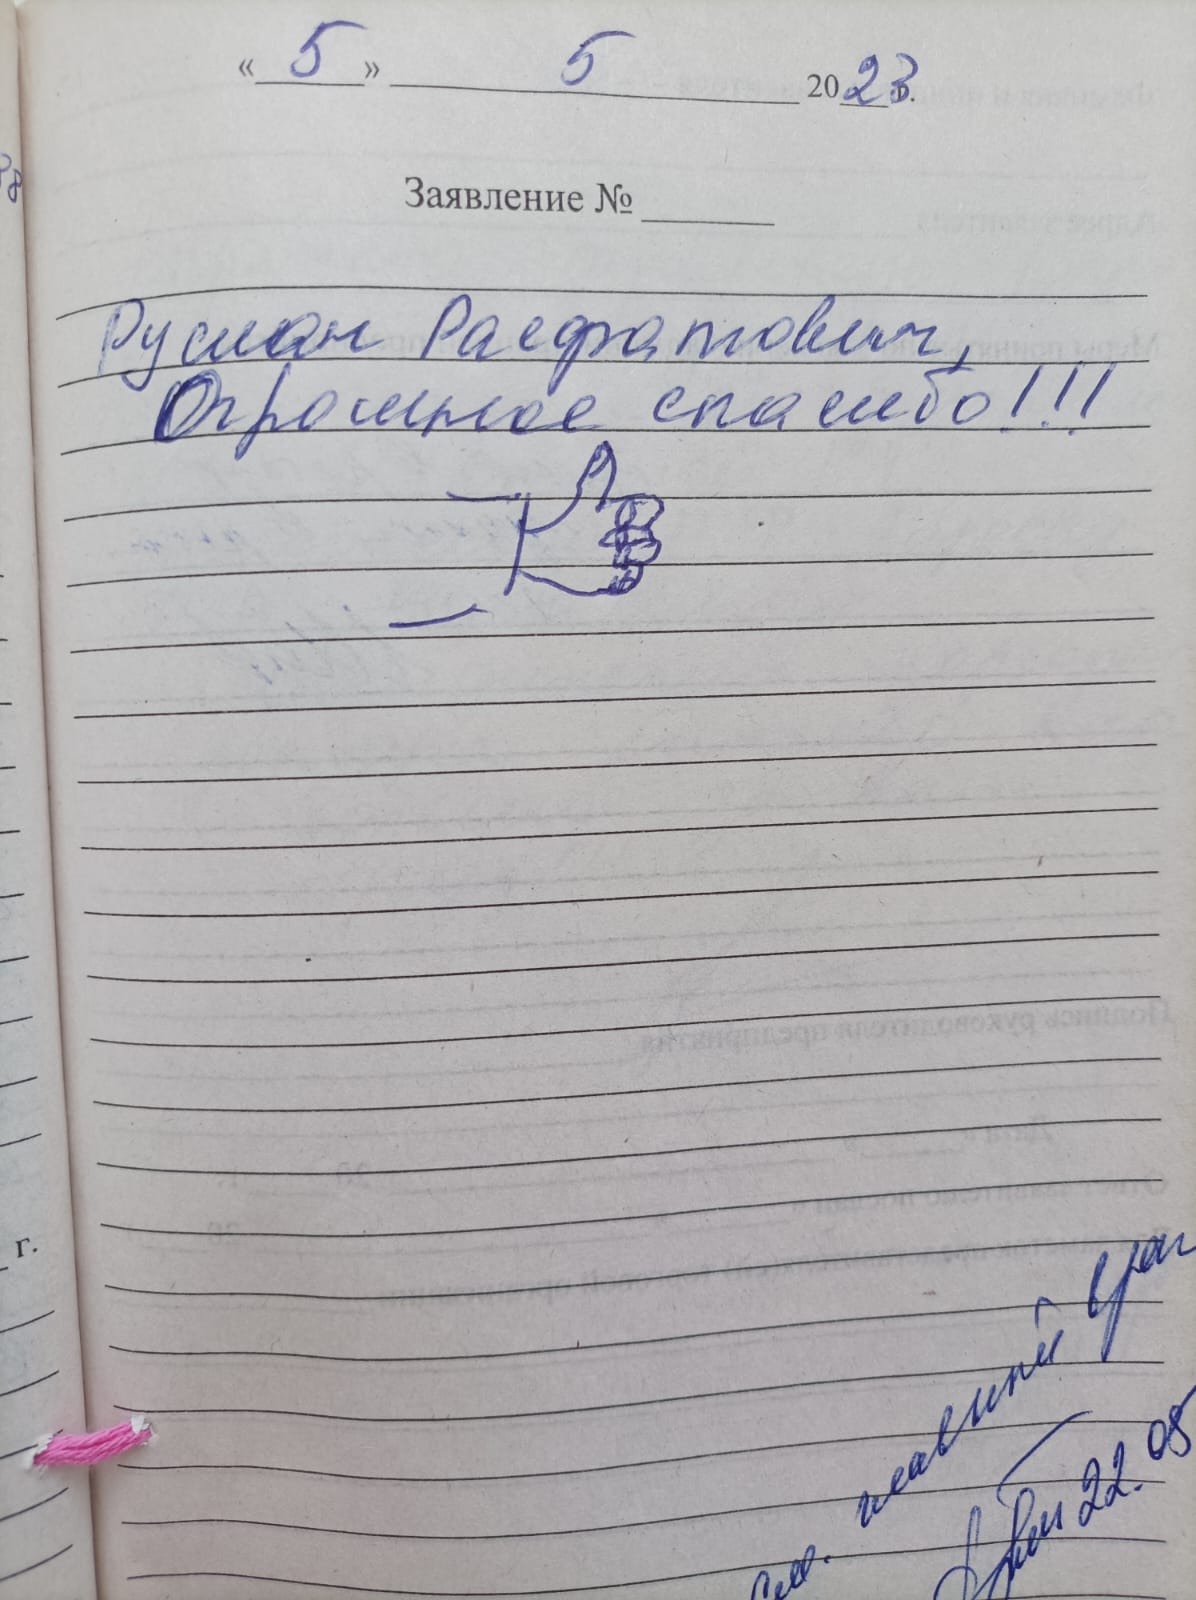 « 5 » 5 2023 г.
Заявление №
Руслан Расфатович,
Огромное спасибо!!!
г.
главный
22.05